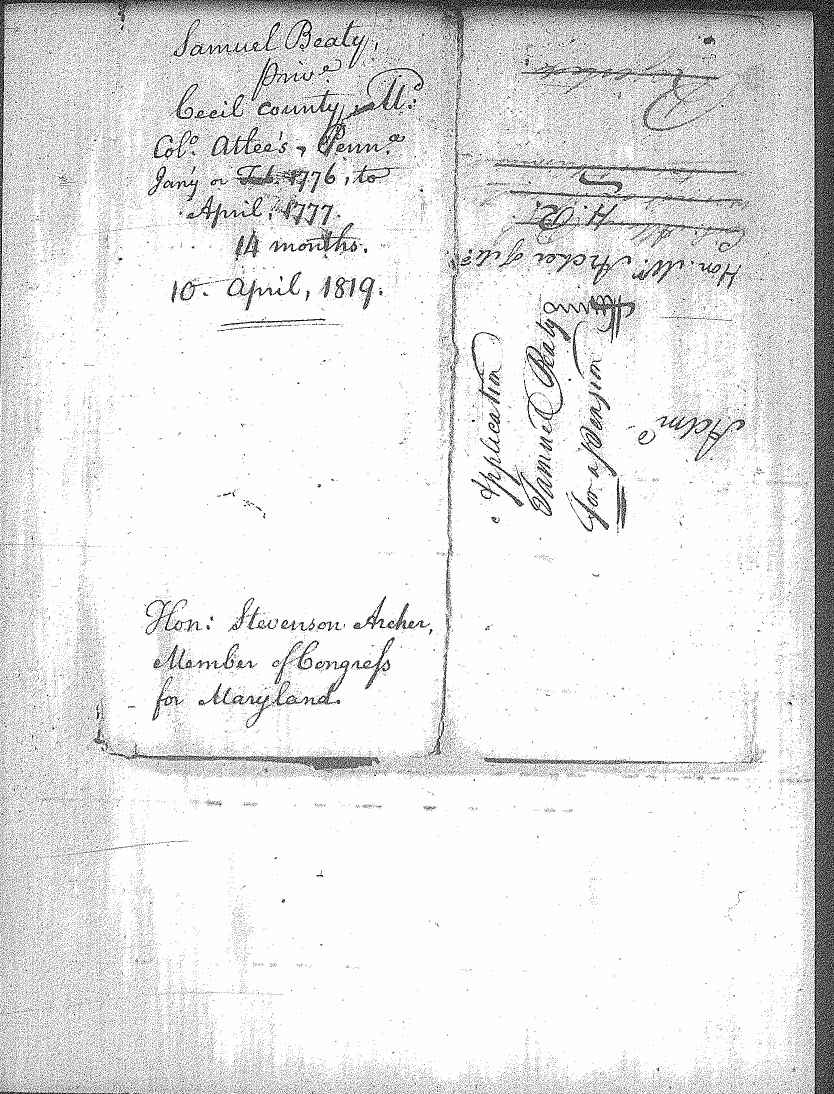 Samuel Beaty,
priv.e
Cecil county, Md:
Col.o Atlee's, Penn.a
Jan'y or Feb. 1776, to
April, 1777.
14 months.
10. April, 1819.
Hon: Stevenson Archer,
Member of Congress
for Maryland.
Application
Samuel Beaty
for a Pension
Hon. Mr. Archer of Md:
H. R.
Adm.d